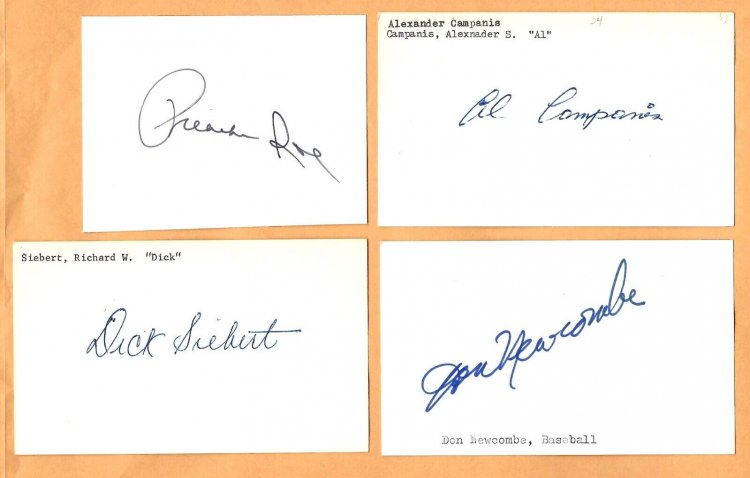 Preacher Roe
Alexander Campanis
Campanis, Alexnader S. "Al"
24
Al Campanis
Siebert, Richard W. "Dick"
Dick Siebert
Don Newcombe
Don Newcombe, Baseball